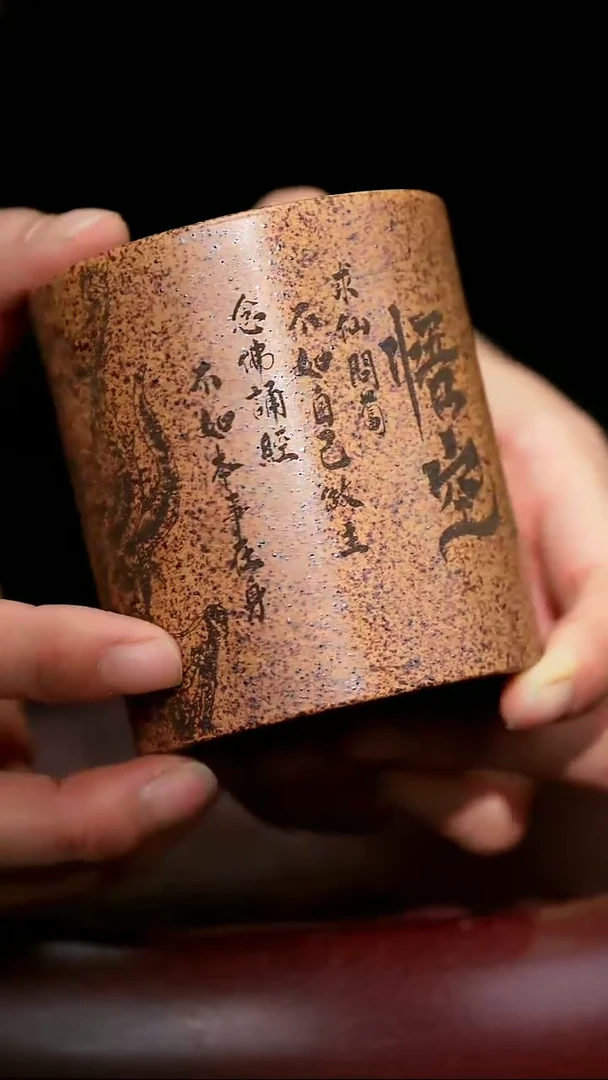 悟空
求仙問蔔
不如自己做主
念佛誦經
不如本事在身